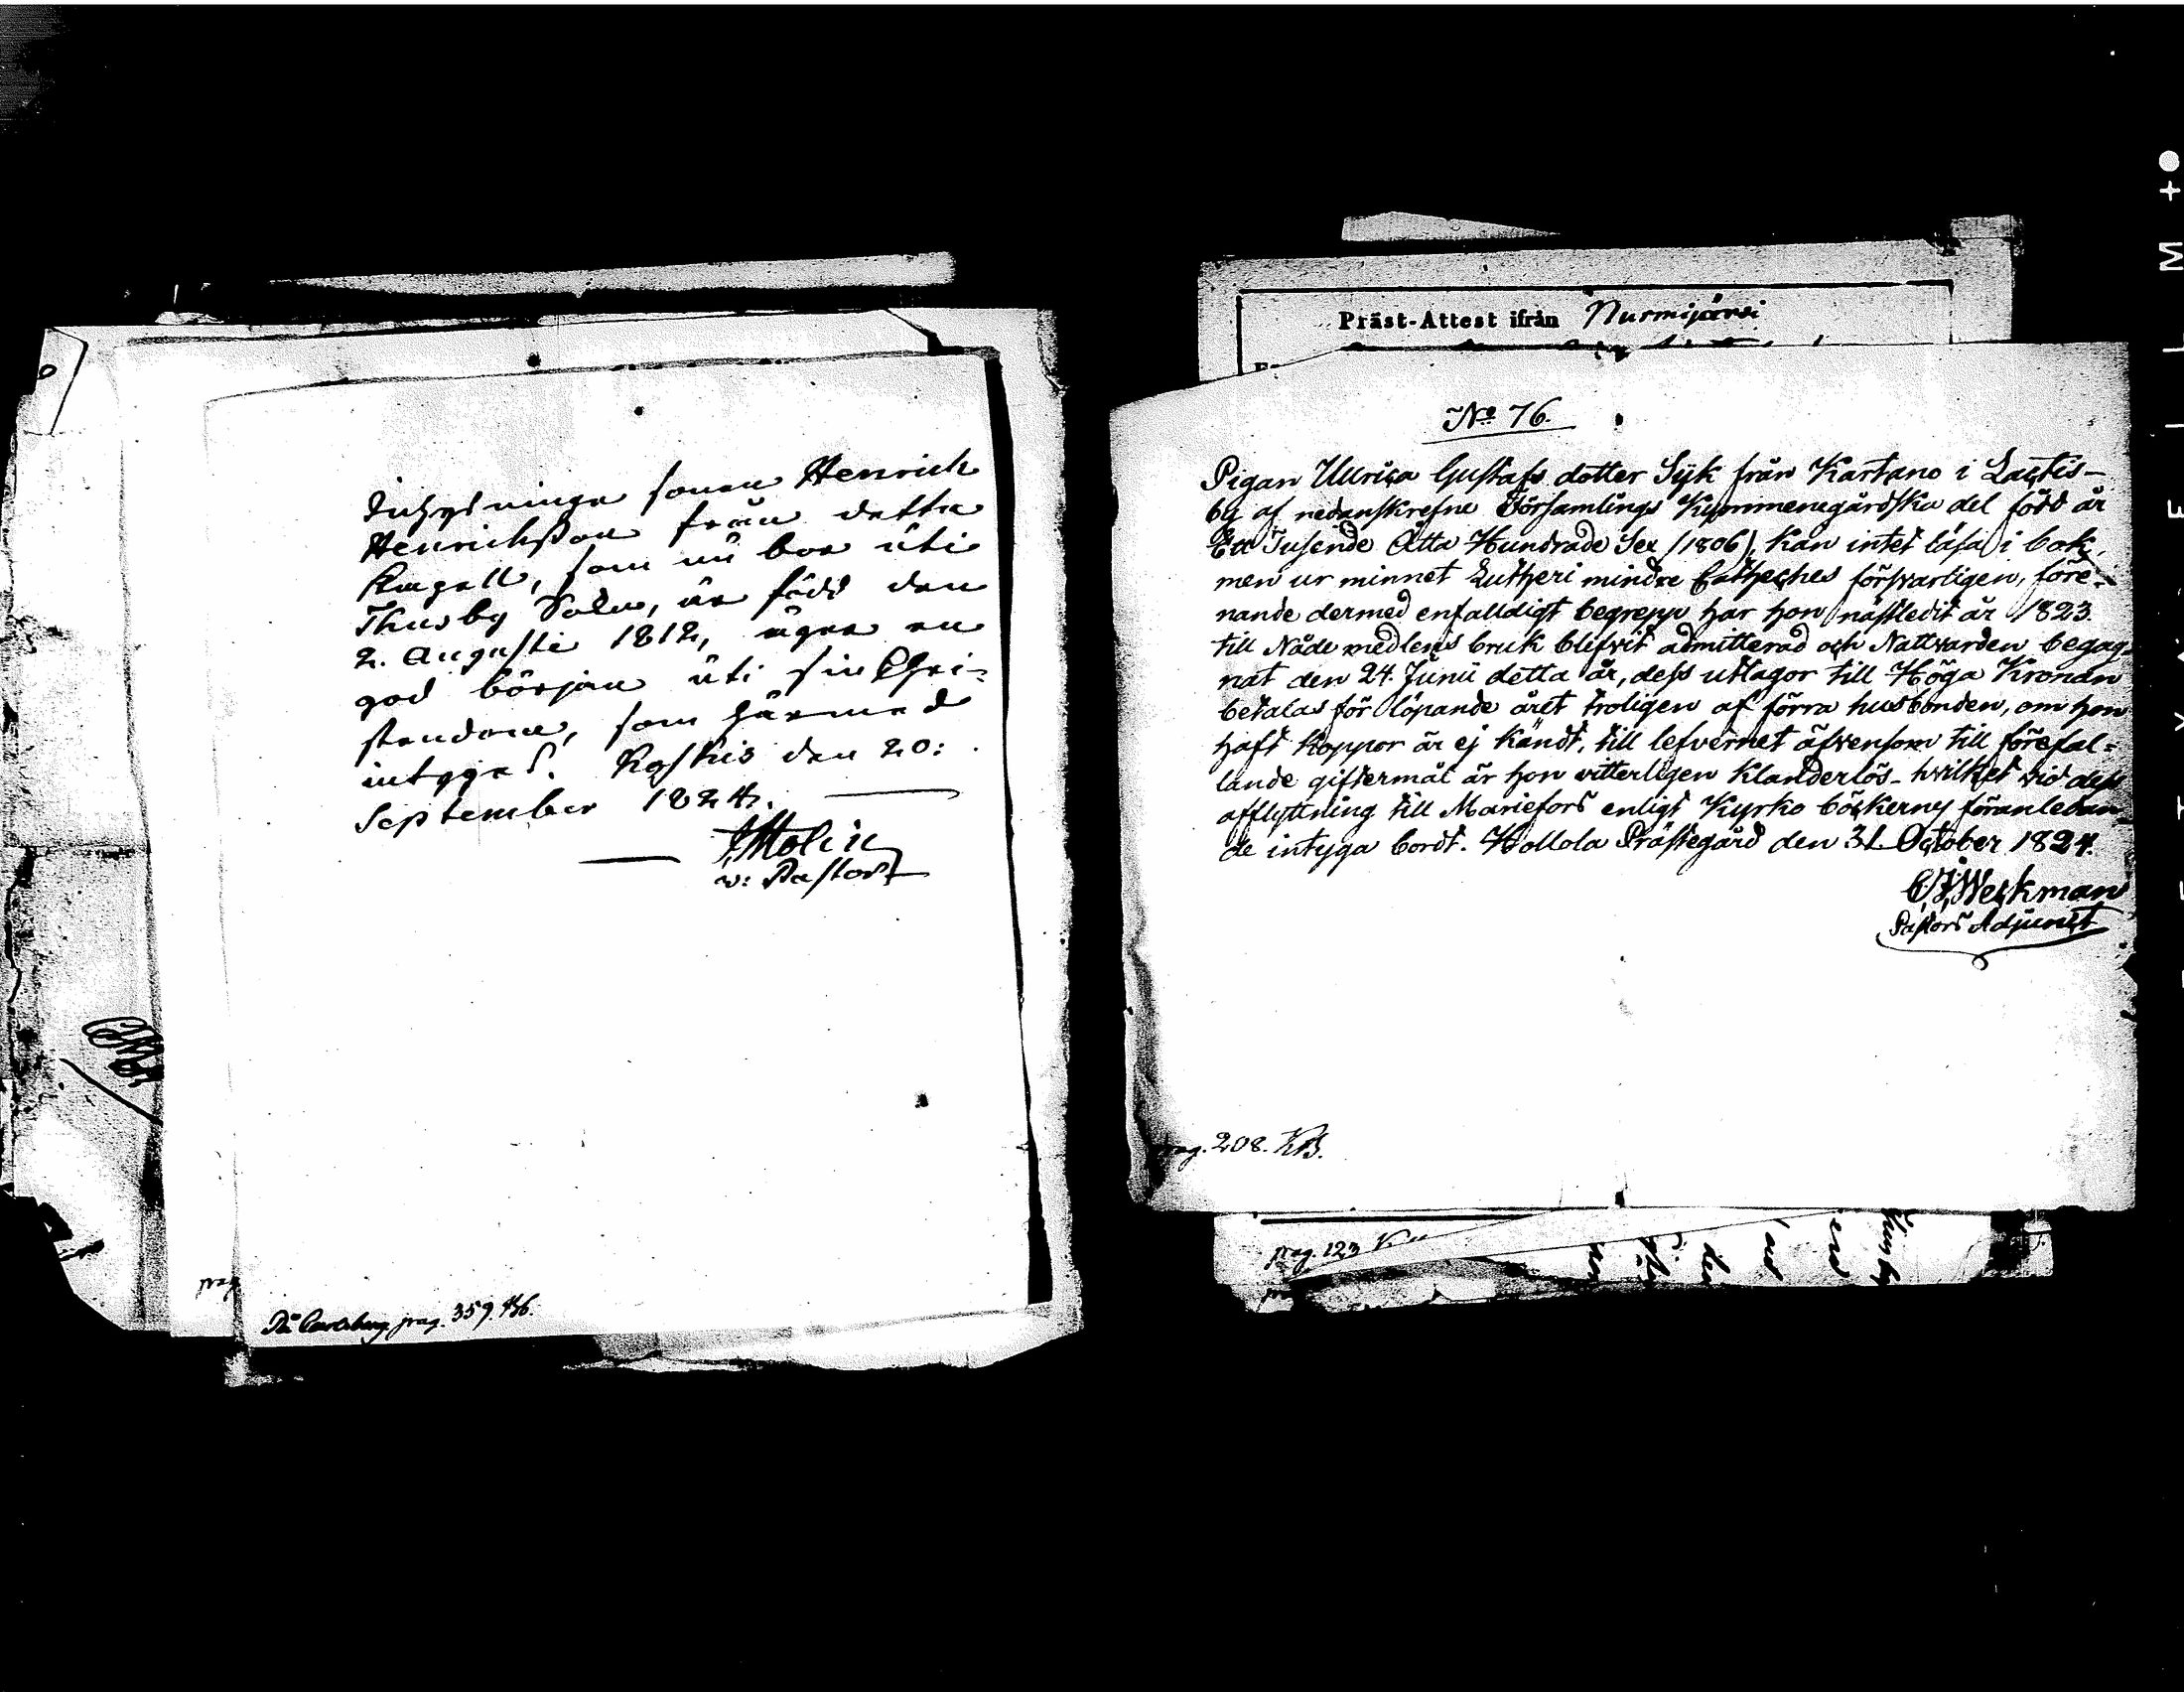 Inhysninge sonen Henrich
Henrichsson från detta
Capell, som nu bor uti
Thusby Soku, är född den
2. Augusti 1812, äger en
god början uti sin Chri-
stendom, som härmed
intygas. Koskis den 20:
September 1824.
Molin
v: Pastor
pag. 359.
Präst-Attest ifrån Nurmijärvi
No 76.
Pigan Ullrica Gustafs dotter Syk från Kartano i Lachtis-
by af nedanskrefne Församlings Kymmenegårdska del född år
Ett Tusende Åtta Hundrade Sex (1806), kan intet läsa i bok,
men ur minnet Lutheri mindre Catheches försvarligen, före-
nande dermed enfalldigt begrepp har hon nästledit år 1823.
till Nåde medlens bruk blifvit admitterad och Nattvarden begag-
nat den 24. Junii detta år, dess utlagor till Höga Kronan
betalas för löpande året troligen af förra husbonden, om hon
haft koppor är ej kändt, till lefvernet äfvensom till förefal-
lande giftermål är hon vitterligen klanderlös - hvilket vid dess
afflyttning till Mariefors enligt Kyrko böckerns föranledan-
de intyga bordt. Hollola Prästegård den 31 October 1824.
Weckman
Pastors Adjunct
pag. 208. KB.
pag. 123